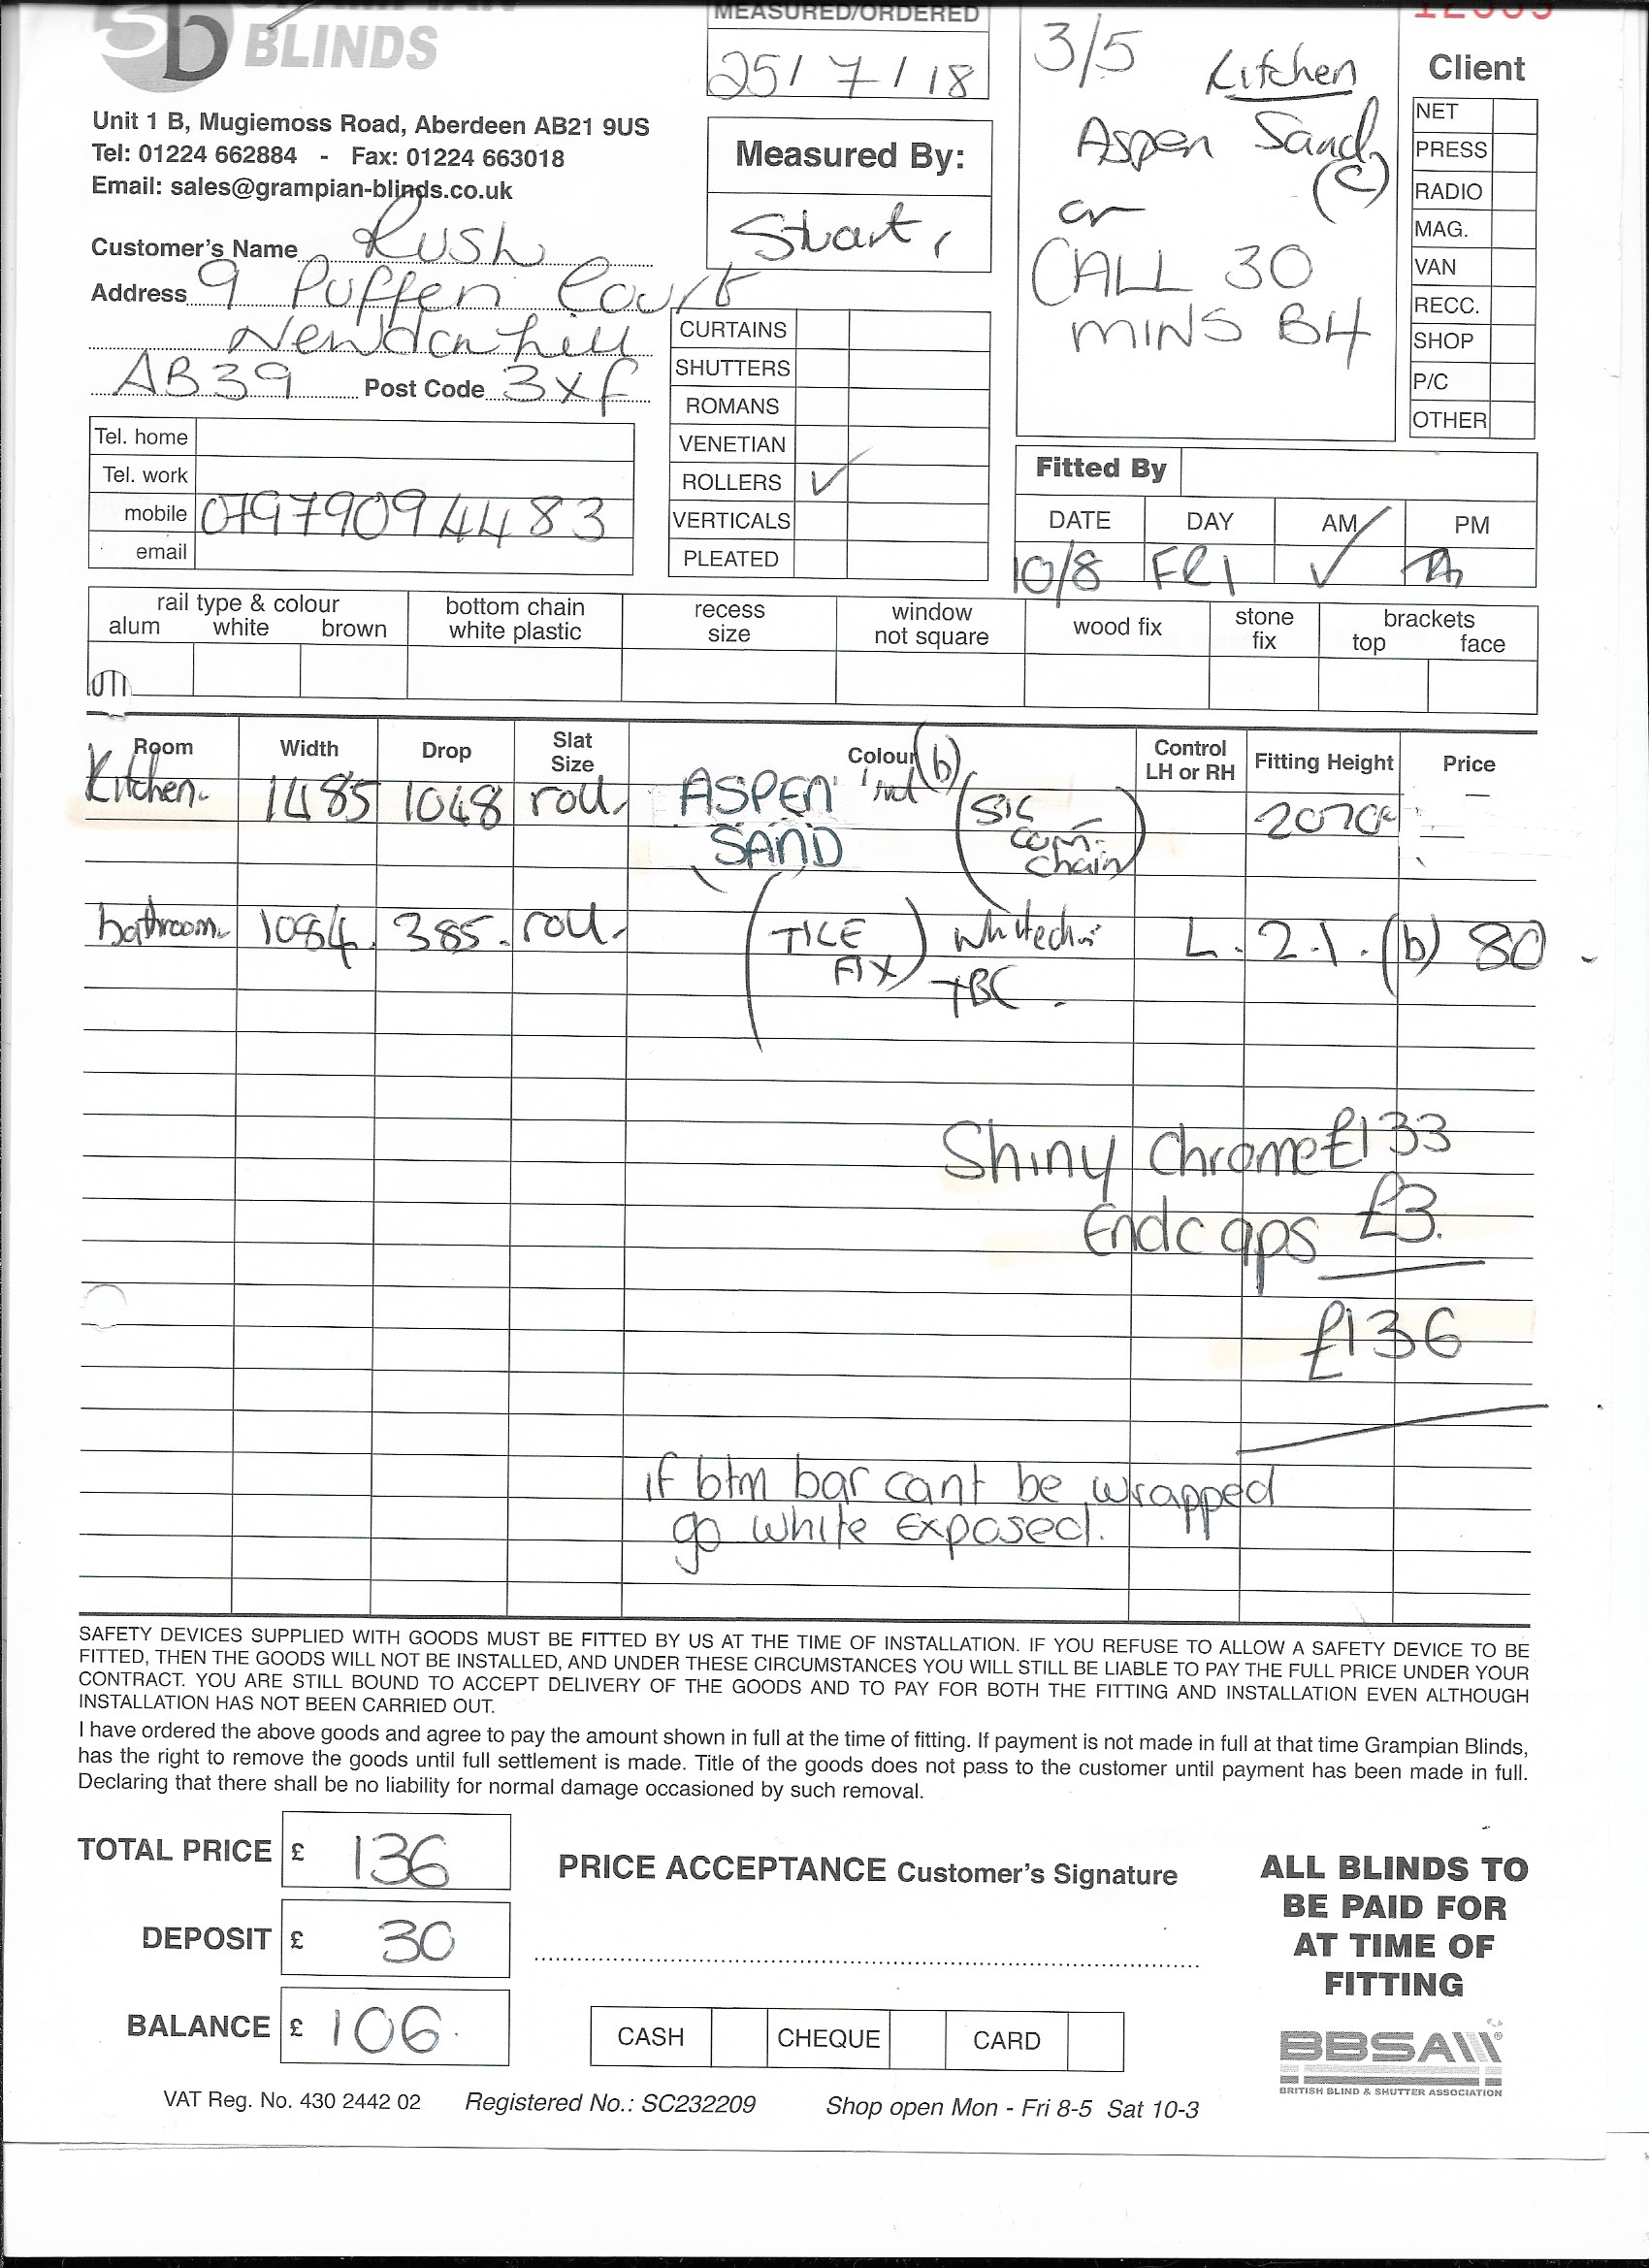 BLINDS
Unit 1 B, Mugiemoss Road, Aberdeen AB21 9US
Tel: 01224 662884 - Fax: 01224 663018
Email: sales@grampian-blinds.co.uk
Customer's Name Rush
Address 9 Puffen Court
Newtonhill
AB39 Post Code 3xf
Tel. home
Tel. work
mobile 07979094483
email
MEASURED/ORDERED
25/7/18
Measured By:
Stuart,
CURTAINS
SHUTTERS
ROMANS
VENETIAN
ROLLERS ✓
VERTICALS
PLEATED
3/5 Kitchen
Aspen Sand
(c)
or
CALL 30
MINS B4
Client
NET
PRESS
RADIO
MAG.
VAN
RECC.
SHOP
P/C
OTHER
Fitted By
DATE DAY AM PM
10/8 FRI ✓
rail type & colour
alum white brown
bottom chain
white plastic
recess
size
window
not square
wood fix
stone
fix
brackets
top face
Room Width Drop Slat Size Colour Control LH or RH Fitting Height Price
(b)
Kitchen. 1485 1048 roll. ASPEN 2070
SAND
chain
bathroom. 1084. 385. roll. (TILE FIX) L. 2.1. (b) 80
TBC.
Shiny Chrome £133
Endcaps £3.
£136
if btm bar cant be wrapped
go white exposed.
SAFETY DEVICES SUPPLIED WITH GOODS MUST BE FITTED BY US AT THE TIME OF INSTALLATION. IF YOU REFUSE TO ALLOW A SAFETY DEVICE TO BE
FITTED, THEN THE GOODS WILL NOT BE INSTALLED, AND UNDER THESE CIRCUMSTANCES YOU WILL STILL BE LIABLE TO PAY THE FULL PRICE UNDER YOUR
CONTRACT. YOU ARE STILL BOUND TO ACCEPT DELIVERY OF THE GOODS AND TO PAY FOR BOTH THE FITTING AND INSTALLATION EVEN ALTHOUGH
INSTALLATION HAS NOT BEEN CARRIED OUT.
I have ordered the above goods and agree to pay the amount shown in full at the time of fitting. If payment is not made in full at that time Grampian Blinds,
has the right to remove the goods until full settlement is made. Title of the goods does not pass to the customer until payment has been made in full.
Declaring that there shall be no liability for normal damage occasioned by such removal.
TOTAL PRICE £ 136
DEPOSIT £ 30
BALANCE £ 106.
PRICE ACCEPTANCE Customer's Signature
CASH CHEQUE CARD
ALL BLINDS TO
BE PAID FOR
AT TIME OF
FITTING
BBSA
BRITISH BLIND & SHUTTER ASSOCIATION
VAT Reg. No. 430 2442 02 Registered No.: SC232209 Shop open Mon - Fri 8-5 Sat 10-3